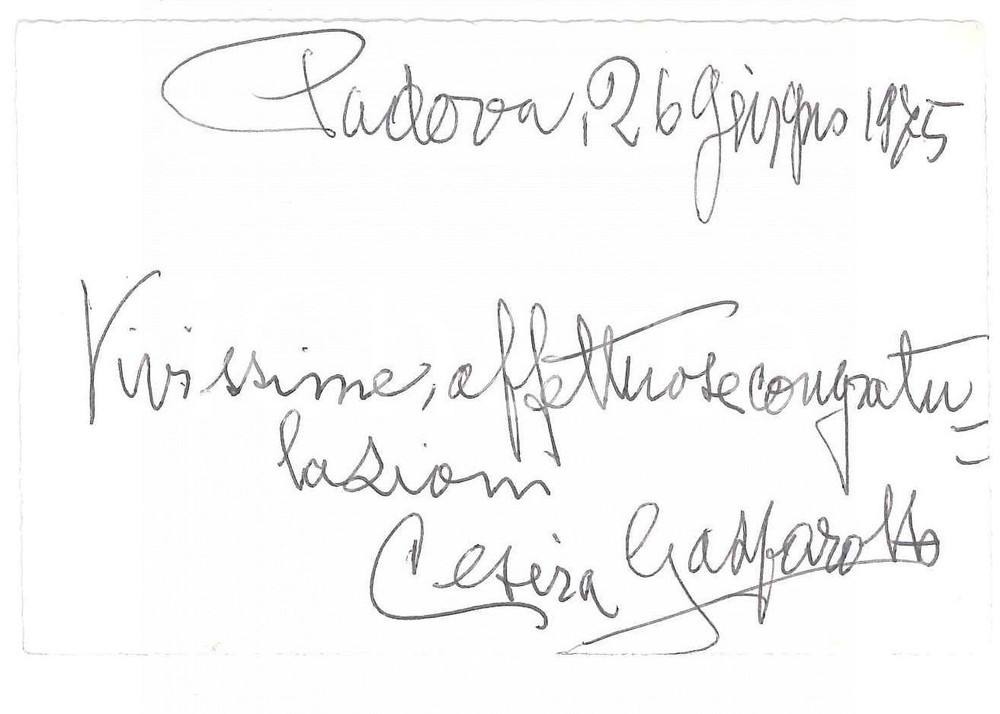 Padova, 26 Giugno 1975
Vivissime, affettuose congratu=
lazioni
Cesira Gasparotto